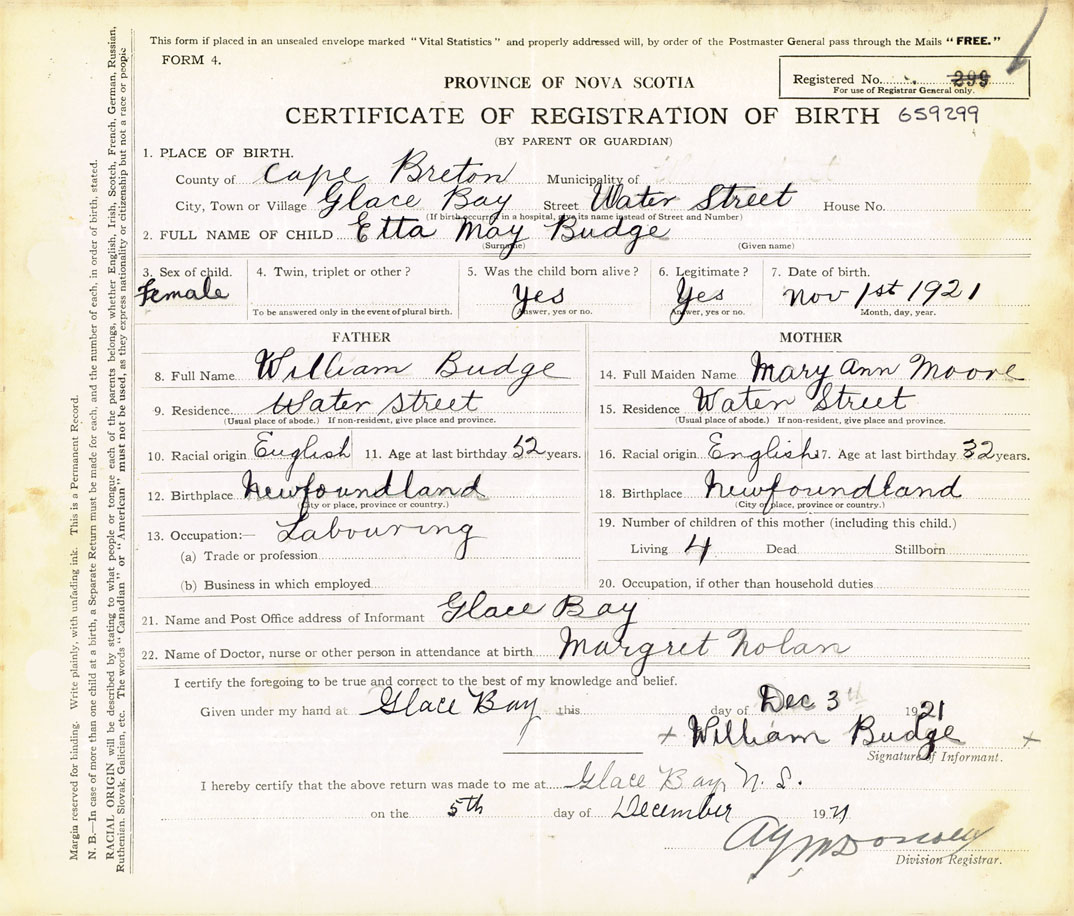 This form if placed in an unsealed envelope marked "Vital Statistics" and properly addressed will, by order of the Postmaster General pass through the Mails "FREE."
FORM 4.
PROVINCE OF NOVA SCOTIA
Registered No. 299
For use of Registrar General only.
CERTIFICATE OF REGISTRATION OF BIRTH 659299
(BY PARENT OR GUARDIAN)
1. PLACE OF BIRTH.
County of Cape Breton Municipality of
City, Town or Village Glace Bay Street Water Street House No.
(If birth occurred in a hospital, give its name instead of Street and Number)
2. FULL NAME OF CHILD Etta May Budge
(Surname) (Given name)
3. Sex of child. 4. Twin, triplet or other? 5. Was the child born alive? 6. Legitimate? 7. Date of birth.
Female Yes Yes Nov 1st 1921
To be answered only in the event of plural birth. Answer, yes or no. Answer, yes or no. Month, day, year.
FATHER MOTHER
8. Full Name William Budge 14. Full Maiden Name Mary Ann Moore
9. Residence Water Street 15. Residence Water Street
(Usual place of abode.) If non-resident, give place and province. (Usual place of abode.) If non-resident, give place and province.
10. Racial origin English 11. Age at last birthday 52 years. 16. Racial origin English 17. Age at last birthday 32 years.
12. Birthplace Newfoundland 18. Birthplace Newfoundland
(City or place, province or country.) (City or place, province or country.)
13. Occupation:— Labouring 19. Number of children of this mother (including this child.)
(a) Trade or profession Living 4 Dead Stillborn
(b) Business in which employed 20. Occupation, if other than household duties
21. Name and Post Office address of Informant Glace Bay
22. Name of Doctor, nurse or other person in attendance at birth Margret Nolan
I certify the foregoing to be true and correct to the best of my knowledge and belief.
Given under my hand at Glace Bay this day of Dec 3th 1921
+ William Budge +
Signature of Informant.
I hereby certify that the above return was made to me at Glace Bay, N. S.
on the 5th day of December 1921
Division Registrar.
Margin reserved for binding. Write plainly, with unfading ink. This is a Permanent Record.
N. B.—In case of more than one child at a birth, a Separate Return must be made for each, and the number of each, in order of birth, stated.
RACIAL ORIGIN will be described by stating to what people or tongue each of the parents belongs, whether English, Irish, Scotch, French, German, Russian,
Ruthenian, Slovak, Galician, etc. The words "Canadian" or "American" must not be used, as they express nationality or citizenship but not a race or people